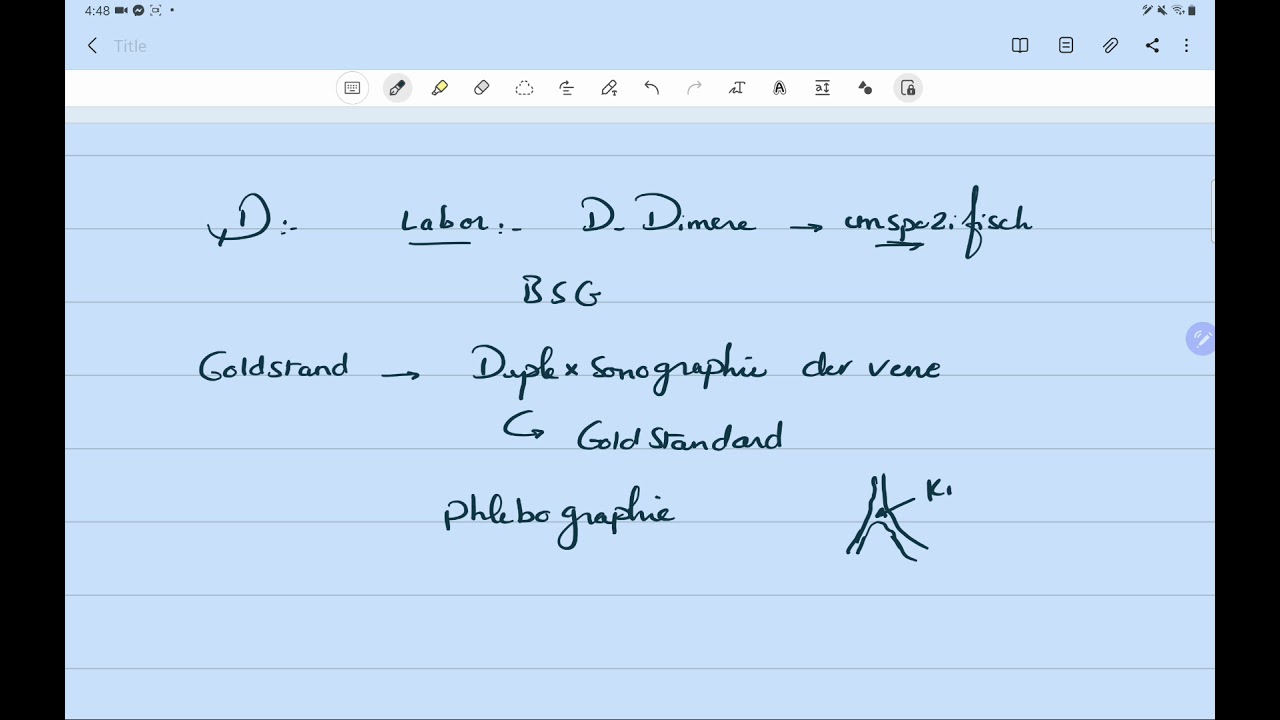 4:48
Title
D:- Labor:- D-Dimere → unspezifisch
BSG
Goldstand → Duplexsonographie der vene
↳ Goldstandard
Phlebographie
K